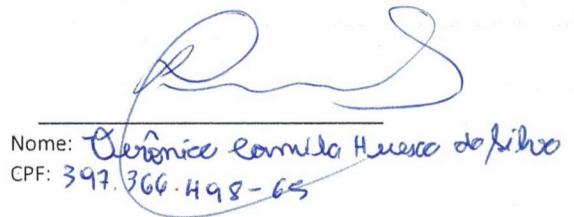 Nome: Verônica Camila Huesca da Silva
CPF: 397.366.498-65